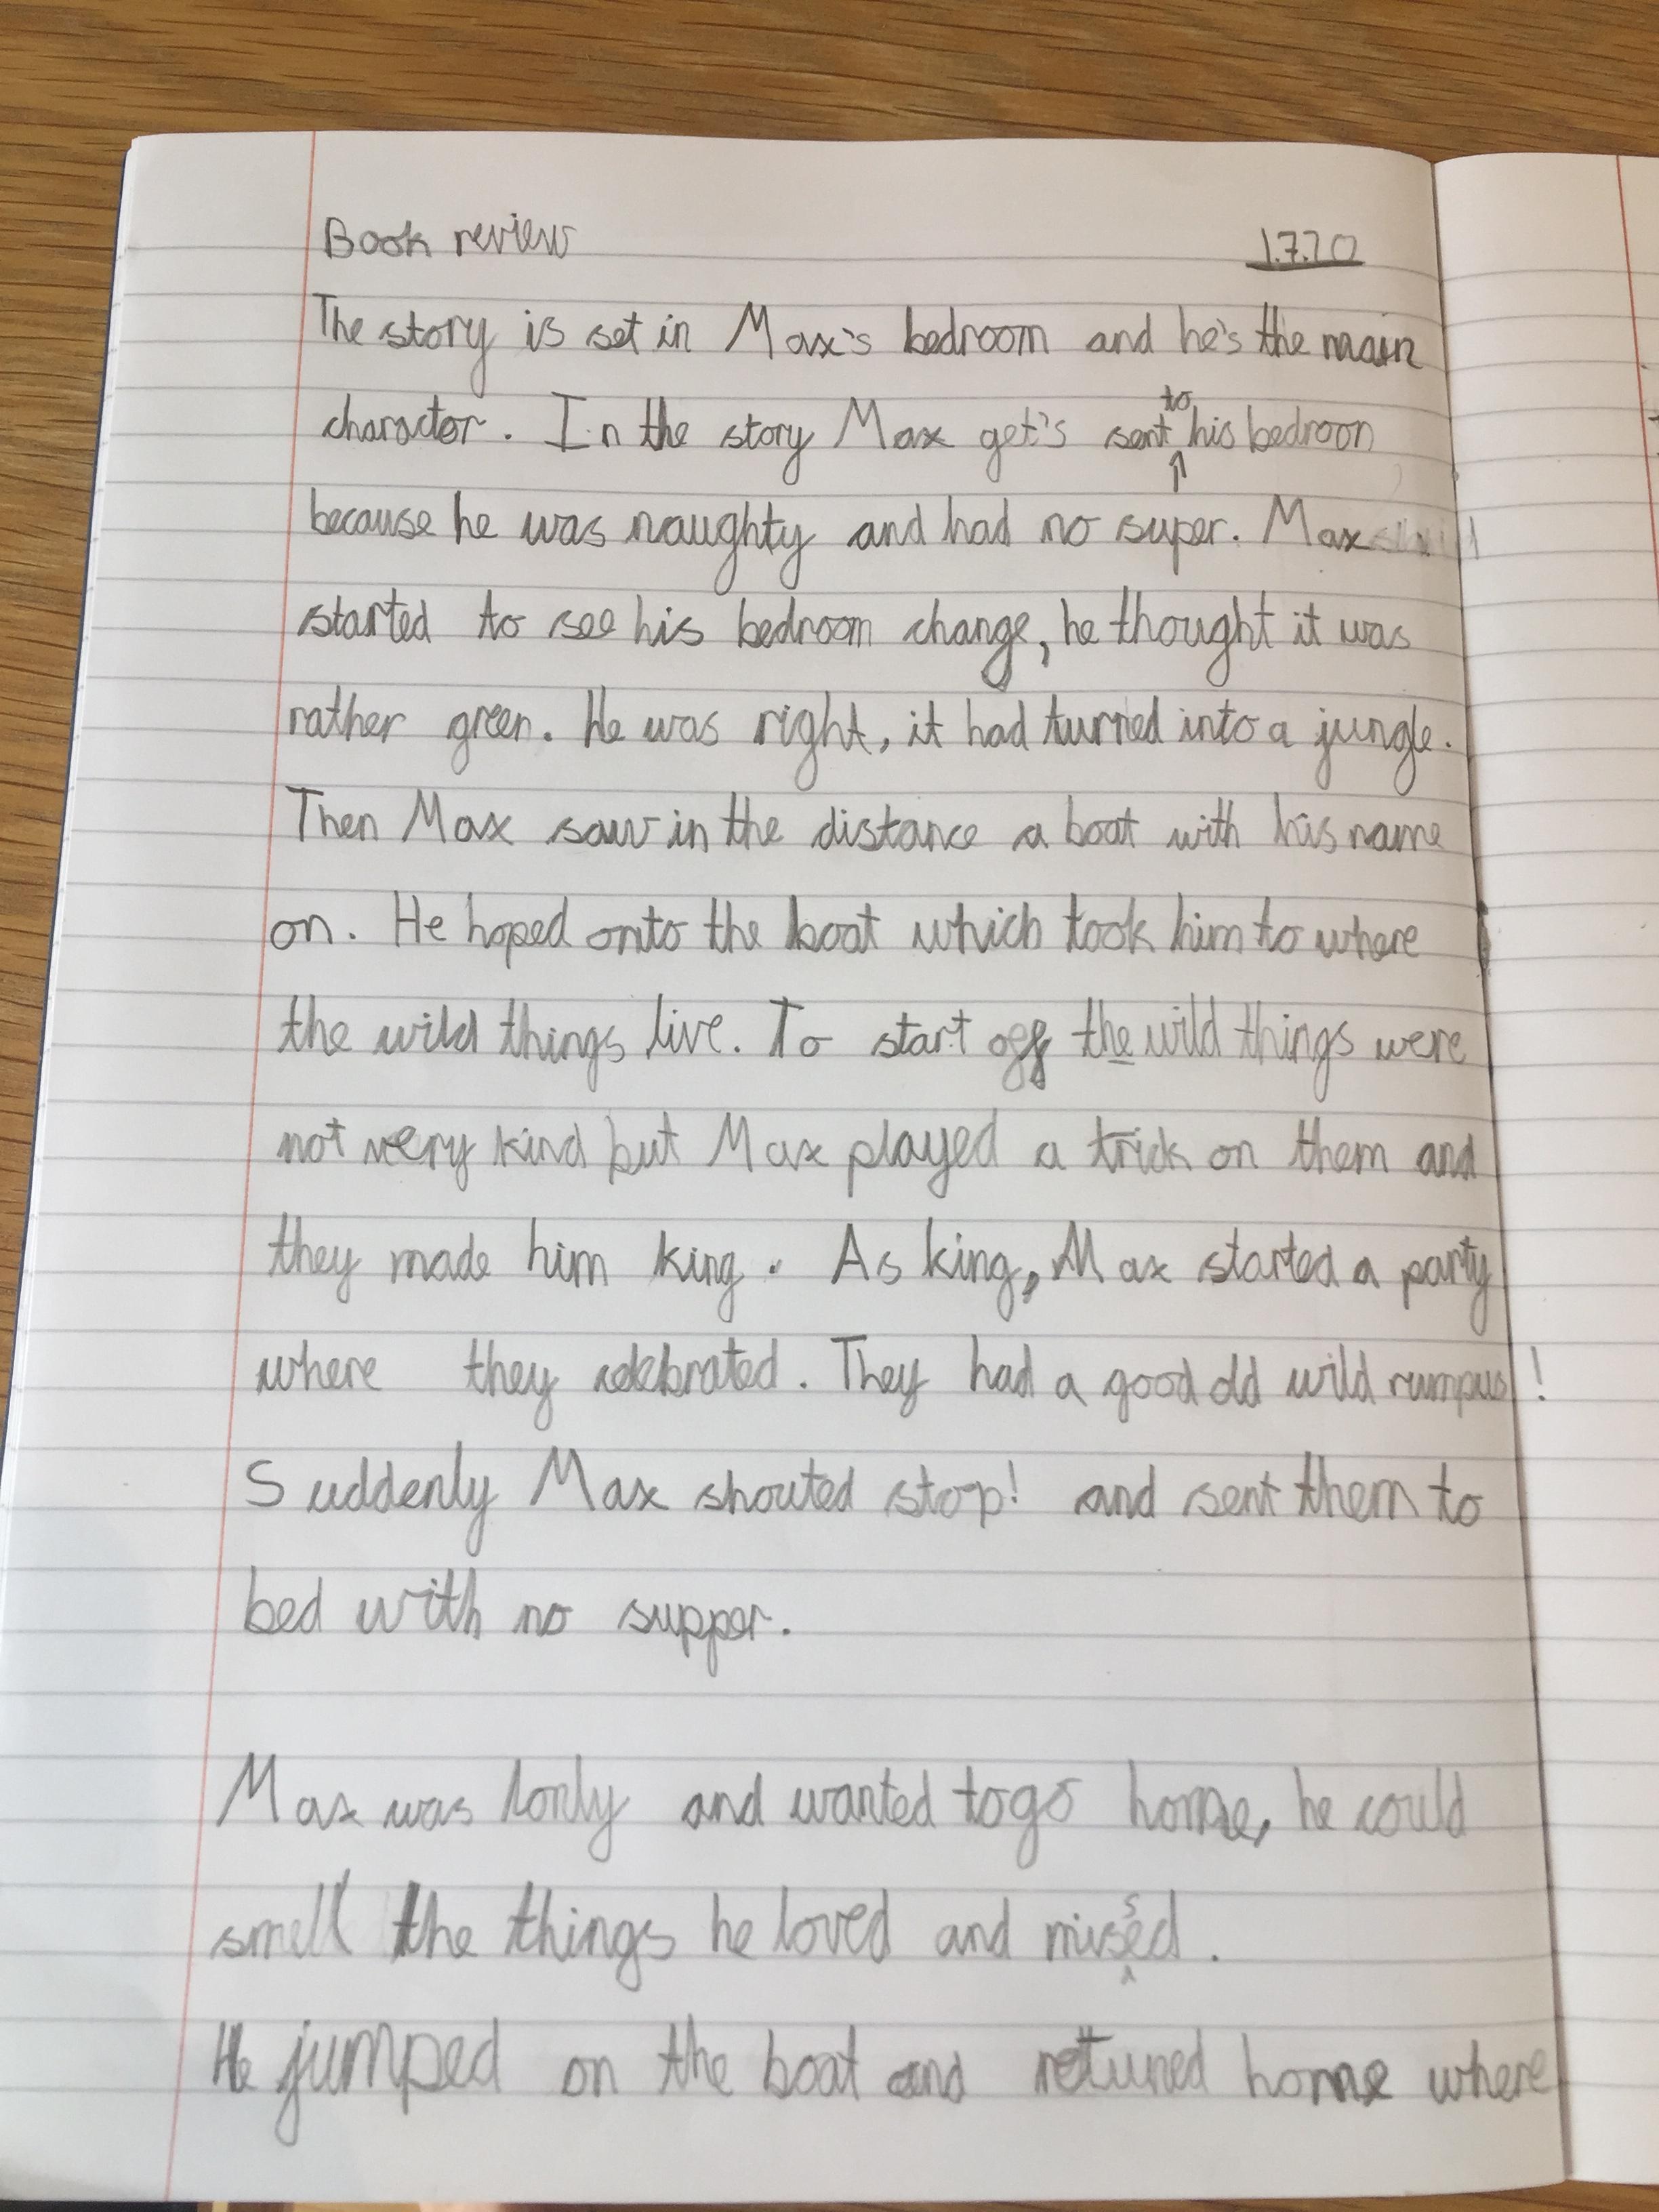 Book review 1.7.20
The story is set in Max's bedroom and he's the main
charactor. In the story Max get's sent to his bedroon
because he was naughty and had no super. Max
started to see his bedroom change, he thought it was
rather green. He was right, it had turned into a jungle.
Then Max saw in the distance a boat with his name
on. He hoped onto the boat which took him to where
the wild things live. To start off the wild things were
not very kind but Max played a trick on them and
they made him king. As king, Max started a party
where they celebrated. They had a good old wild rumpus!
Suddenly Max shouted stop! and sent them to
bed with no supper.
Max was lonly and wanted to go home, he could
smell the things he loved and missed.
He jumped on the boat and retuned home where